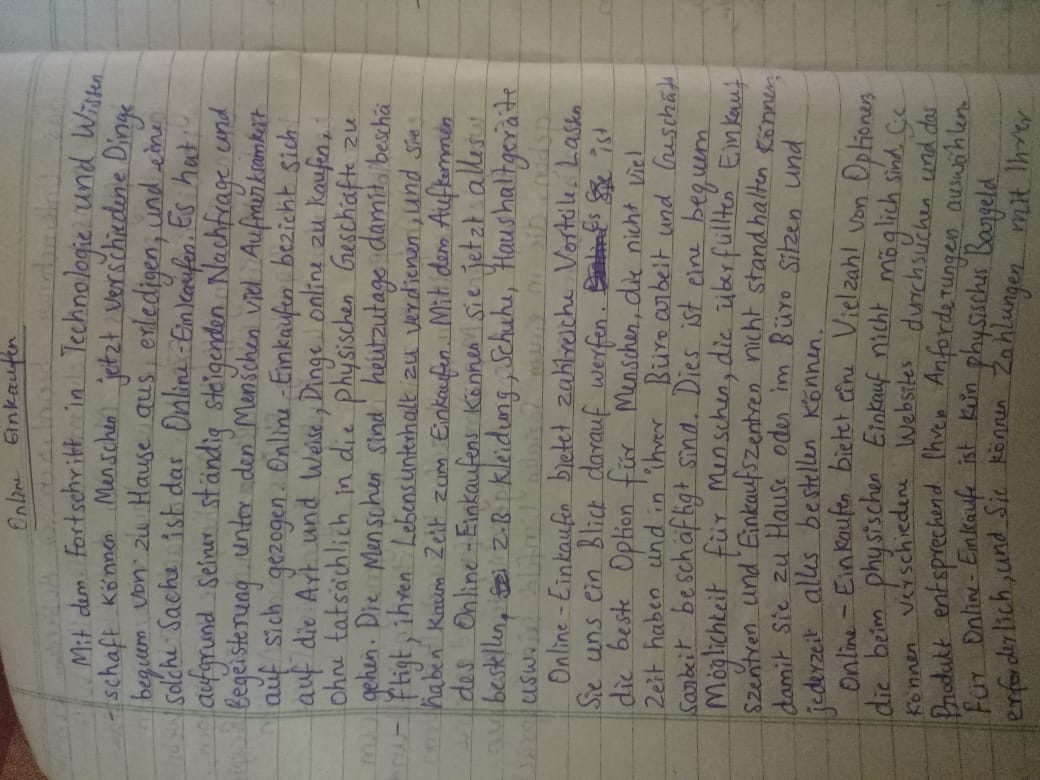 Online Einkaufen
Mit dem Fortschritt in Technologie und Wissen
- schaft können Menschen jetzt verschiedene Dinge
bequem von zu Hause aus erledigen, und eine
solche Sache ist das Online-Einkaufen. Es hat
aufgrund seiner ständig steigenden Nachfrage und
Begeisterung unter den Menschen viel Aufmerksamkeit
auf sich gezogen. Online-Einkaufen bezieht sich
auf die Art und Weise, Dinge online zu kaufen,
ohne tatsächlich in die physischen Geschäfte zu
gehen. Die Menschen sind heutzutage damit beschä
- ftigt, ihren Lebensunterhalt zu verdienen und sie
haben kaum Zeit zum Einkaufen. Mit dem Aufkommen
des Online-Einkaufens können sie jetzt alles
bestellen, z.B Kleidung, Schuhe, Haushaltgeräte
usw.
Online-Einkaufen bietet zahlreiche Vorteile. Lassen
Sie uns ein Blick darauf werfen. Es ist
die beste Option für Menschen, die nicht viel
Zeit haben und in ihrer Büroarbeit und Guschäft
saabeit beschäftigt sind. Dies ist eine bequem
Möglichkeit für Menschen, die überfüllten Einkauf
szentren und Einkaufszentren nicht standhalten können,
damit sie zu Hause oder im Büro sitzen und
jederzeit alles bestellen können.
Online-Einkaufen bietet eine Vielzahl von Optionen,
die beim physischen Einkauf nicht möglich sind. Ce
können verschiedene Websites durchsuchen und das
Produkt entsprechend Ihren Anforderungen auswählen.
Für Online-Einkäufe ist kein physisches Bargeld
erforderlich, und Sie können Zahlungen mit Ihrer